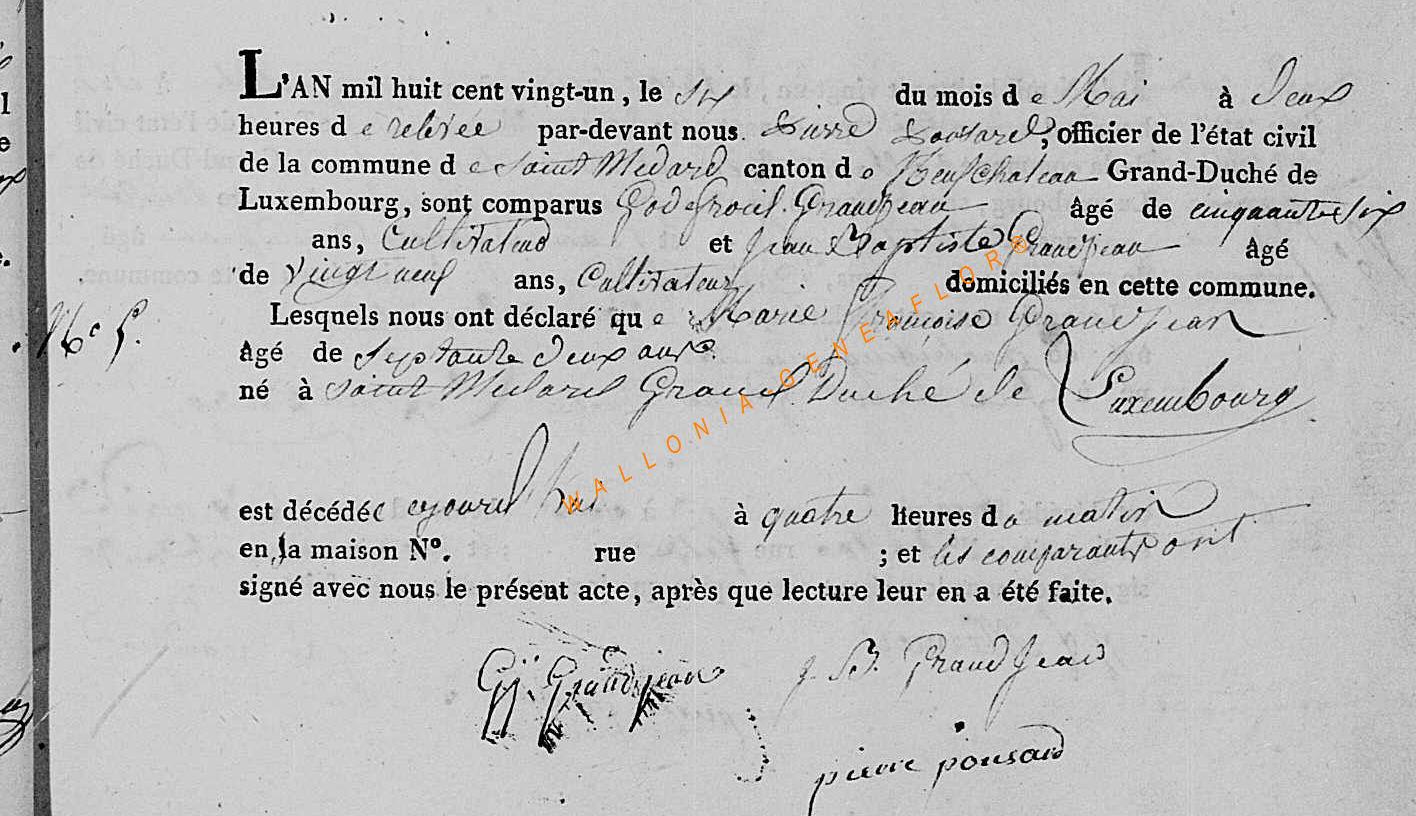 L'AN mil huit cent vingt-un, le six du mois de Mai à deux
heures de relevée par-devant nous Pierre Ponsard, officier de l'état civil
de la commune de Saint Medard canton de Neufchateau Grand-Duché de
Luxembourg, sont comparus Godefroid Grandjean âgé de cinquante six
ans, Cultivateur et Jean Baptiste Grandjean âgé
de vingt neuf ans, Cultivateur domiciliés en cette commune.
Lesquels nous ont déclaré que Marie Françoise Grandjean
N° 5.
âgé de septante deux ans
né à Saint Medard Grand Duché de Luxembourg
est décédée à quatre heures du matin
en la maison N°. rue ; et les comparants ont
signé avec nous le présent acte, après que lecture leur en a été faite.
G. Grandjean J. B. Grandjean
pierre ponsard
WALLONIA GENEAFLOR®